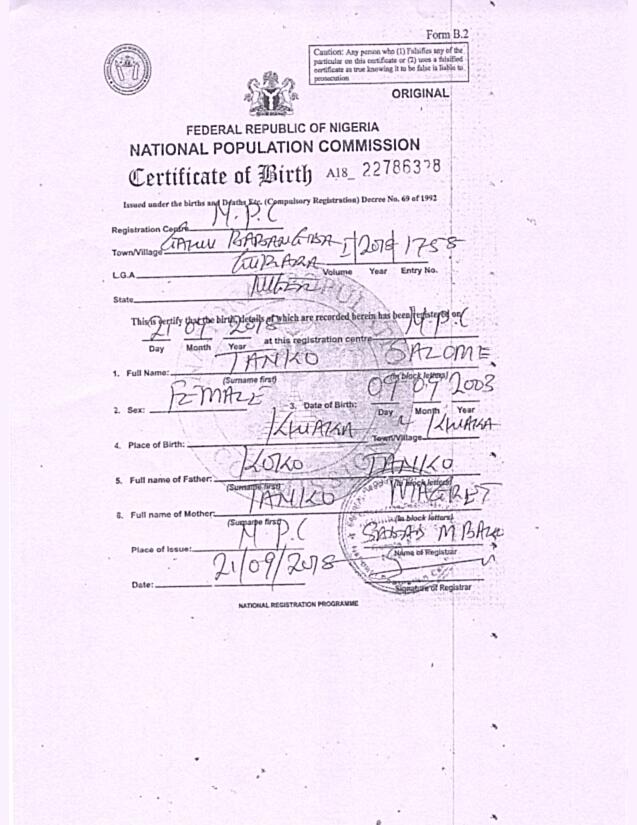 Form B.2
Caution: Any person who (1) Falsifies any of the
particular on this certificate or (2) uses a falsified
certificate as true knowing it to be false is liable to
prosecution
ORIGINAL
FEDERAL REPUBLIC OF NIGERIA
NATIONAL POPULATION COMMISSION
Certificate of Birth A18_ 22786378
Issued under the births and Deaths Etc. (Compulsory Registration) Decree No. 69 of 1992
Registration Centre N.P.C
Town/Village I 2018 1758
L.G.A. GURARA Volume Year Entry No.
State NIGER
This is certify that the birth, details of which are recorded herein has been registered on
21 09 2018 at this registration centre N.P.C
Day Month Year
1. Full Name: TANKO SALOME
(Surname first) (In block letters)
2. Sex: FEMALE 3. Date of Birth: 09 09 2003
Day Month Year
4. Place of Birth: KWAKA Town/Village KWAKA
5. Full name of Father: KOKO TANKO
(Surname first) (In block letters)
6. Full name of Mother: TANKO MAGRET
(Surname first) (In block letters)
Place of Issue: N.P.C
Name of Registrar
Date: 21/09/2018
Signature of Registrar
NATIONAL REGISTRATION PROGRAMME